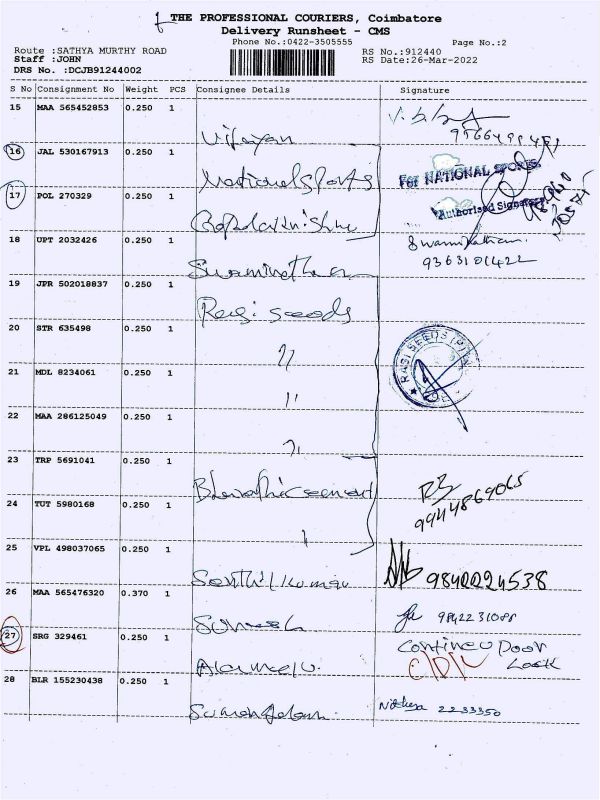 THE PROFESSIONAL COURIERS, Coimbatore
Delivery Runsheet - CMS
Phone No.:0422-3505555 Page No.:2
Route :SATHYA MURTHY ROAD RS No.:912440
Staff :JOHN RS Date:26-Mar-2022
DRS No. :DCJB91244002
S No Consignment No Weight PCS Consignee Details Signature
15 MAA 565452853 0.250 1
Vijayan
16 JAL 530167913 0.250 1 For NATIONAL SPORTS
National Sports
17 POL 270329 0.250 1 Authorised Signatory
18 UPT 2032426 0.250 1 Swaminathan
Swaminathan 9363101422
19 JPR 502018837 0.250 1
Rasi seeds
20 STR 635498 0.250 1 RASI SEEDS
21 MDL 8234061 0.250 1
22 MAA 286125049 0.250 1
23 TRP 5691041 0.250 1
9944869065
24 TUT 5980168 0.250 1
25 VPL 498037065 0.250 1
Senthilkumar 9840224538
26 MAA 565476320 0.370 1
Suresh
27 SRG 329461 0.250 1 Contineu Door
Alamelu. C/D/L Lock
28 BLR 155230438 0.250 1
2233350